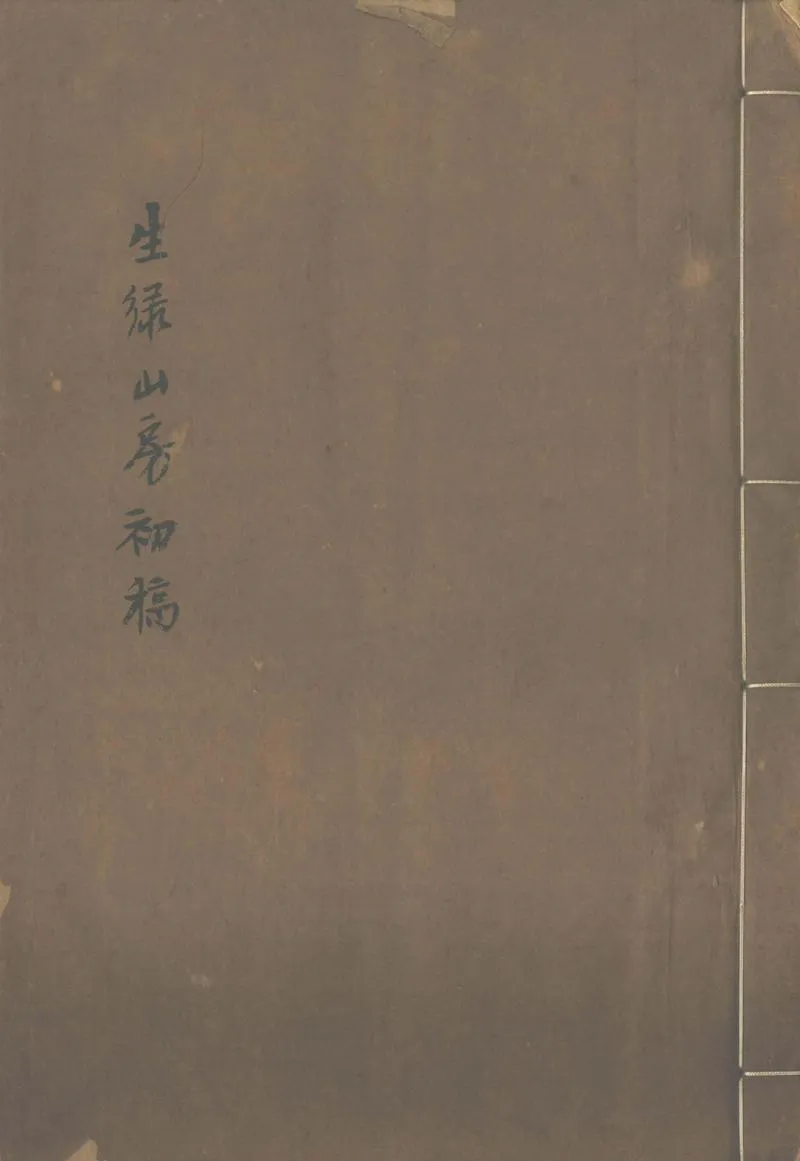 生緑山房初稿